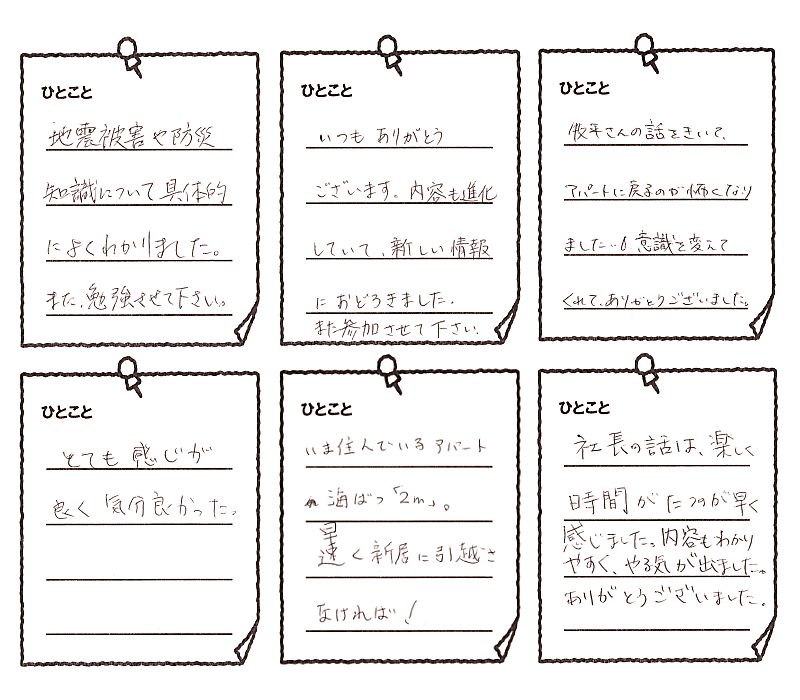 ひとこと
地震被害や防災
知識について具体的
によくわかりました。
また、勉強させて下さい。
ひとこと
いつも ありがとう
ございます。内容も進化
していて、新しい情報
におどろきました。
また参加させて下さい。
ひとこと
牧平さんの話をきいて、
アパートに戻るのが怖くなり
ました…6 意識を変えて
くれて、ありがとうございました。
ひとこと
とても 感じが
良く 気分良かった。
ひとこと
いま住んでいる アパート
海ばつ「2m」。
早
速く新居に引越さ
なければ!
ひとこと
社長の話は、楽しく
時間がたつのが早く
感じました。内容もわかり
やすく、やる気が出ました。
ありがとうございました。